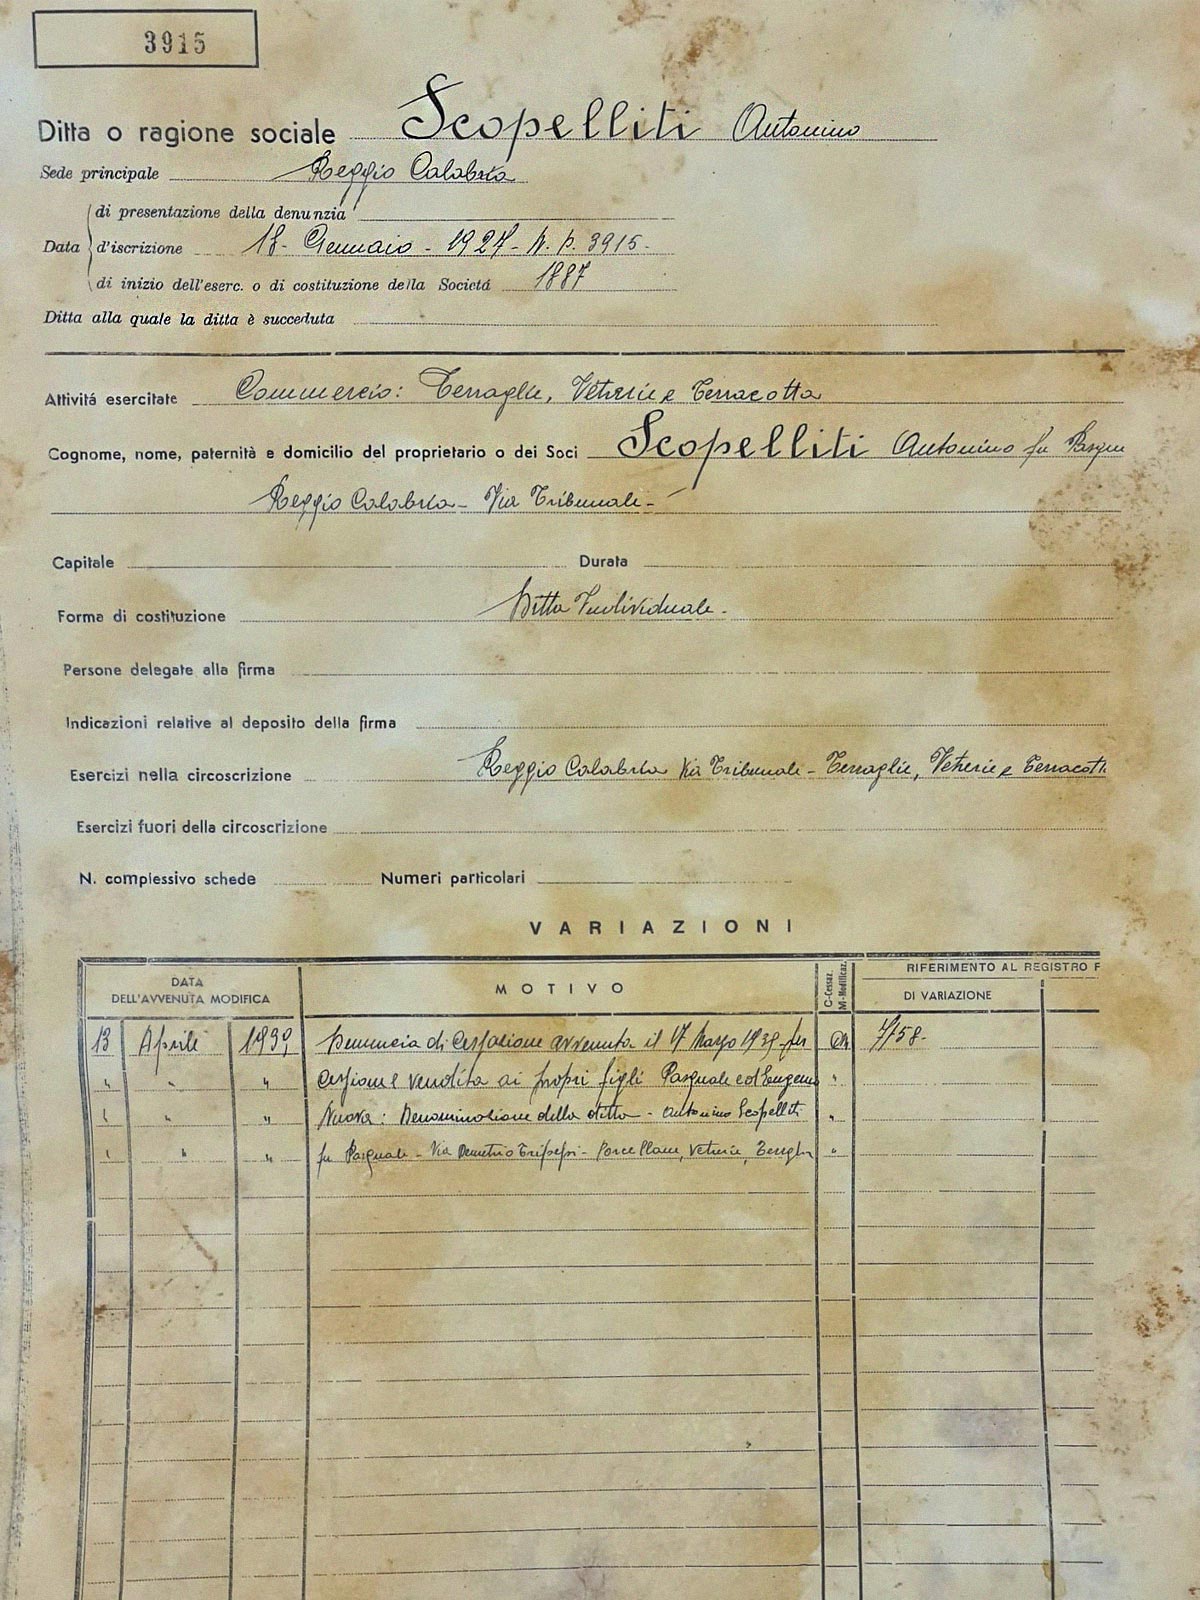 3915
Ditta o ragione sociale Scopelliti Antonino
Sede principale Reggio Calabria
di presentazione della denunzia
Data d'iscrizione 18 - Gennaio - 1927 - N. p. 3915 -
di inizio dell'eserc. o di costituzione della Societá 1887
Ditta alla quale la ditta è succeduta
Attivitá esercitate Commercio: Terraglie, Vetrerie e Terracotta
Cognome, nome, paternità e domicilio del proprietario o dei Soci Scopelliti Antonino fu Pasqu
Reggio Calabria - Via Tribunali -
Capitale Durata
Forma di costituzione Ditta Individuale -
Persone delegate alla firma
Indicazioni relative al deposito della firma
Esercizi nella circoscrizione Reggio Calabria Via Tribunali - Terraglie, Vetrerie e Terracott
Esercizi fuori della circoscrizione
N. complessivo schede Numeri particolari
VARIAZIONI
DATA DELL'AVVENUTA MODIFICA MOTIVO C-Cessaz. M-Modificaz. RIFERIMENTO AL REGISTRO
DI VARIAZIONE
13 Aprile 1939 Denuncia di Cessazione avvenuta il 17 Marzo 1939 per 7158 -
" " " cessione e vendita ai propri figli Pasquale ed Eugenio "
" " " Nuova: Denominazione della ditta - Antonino Scopelliti "
" " " fu Pasquale - Via Demetrio Tripepi - Porcellane, Vetrerie, "